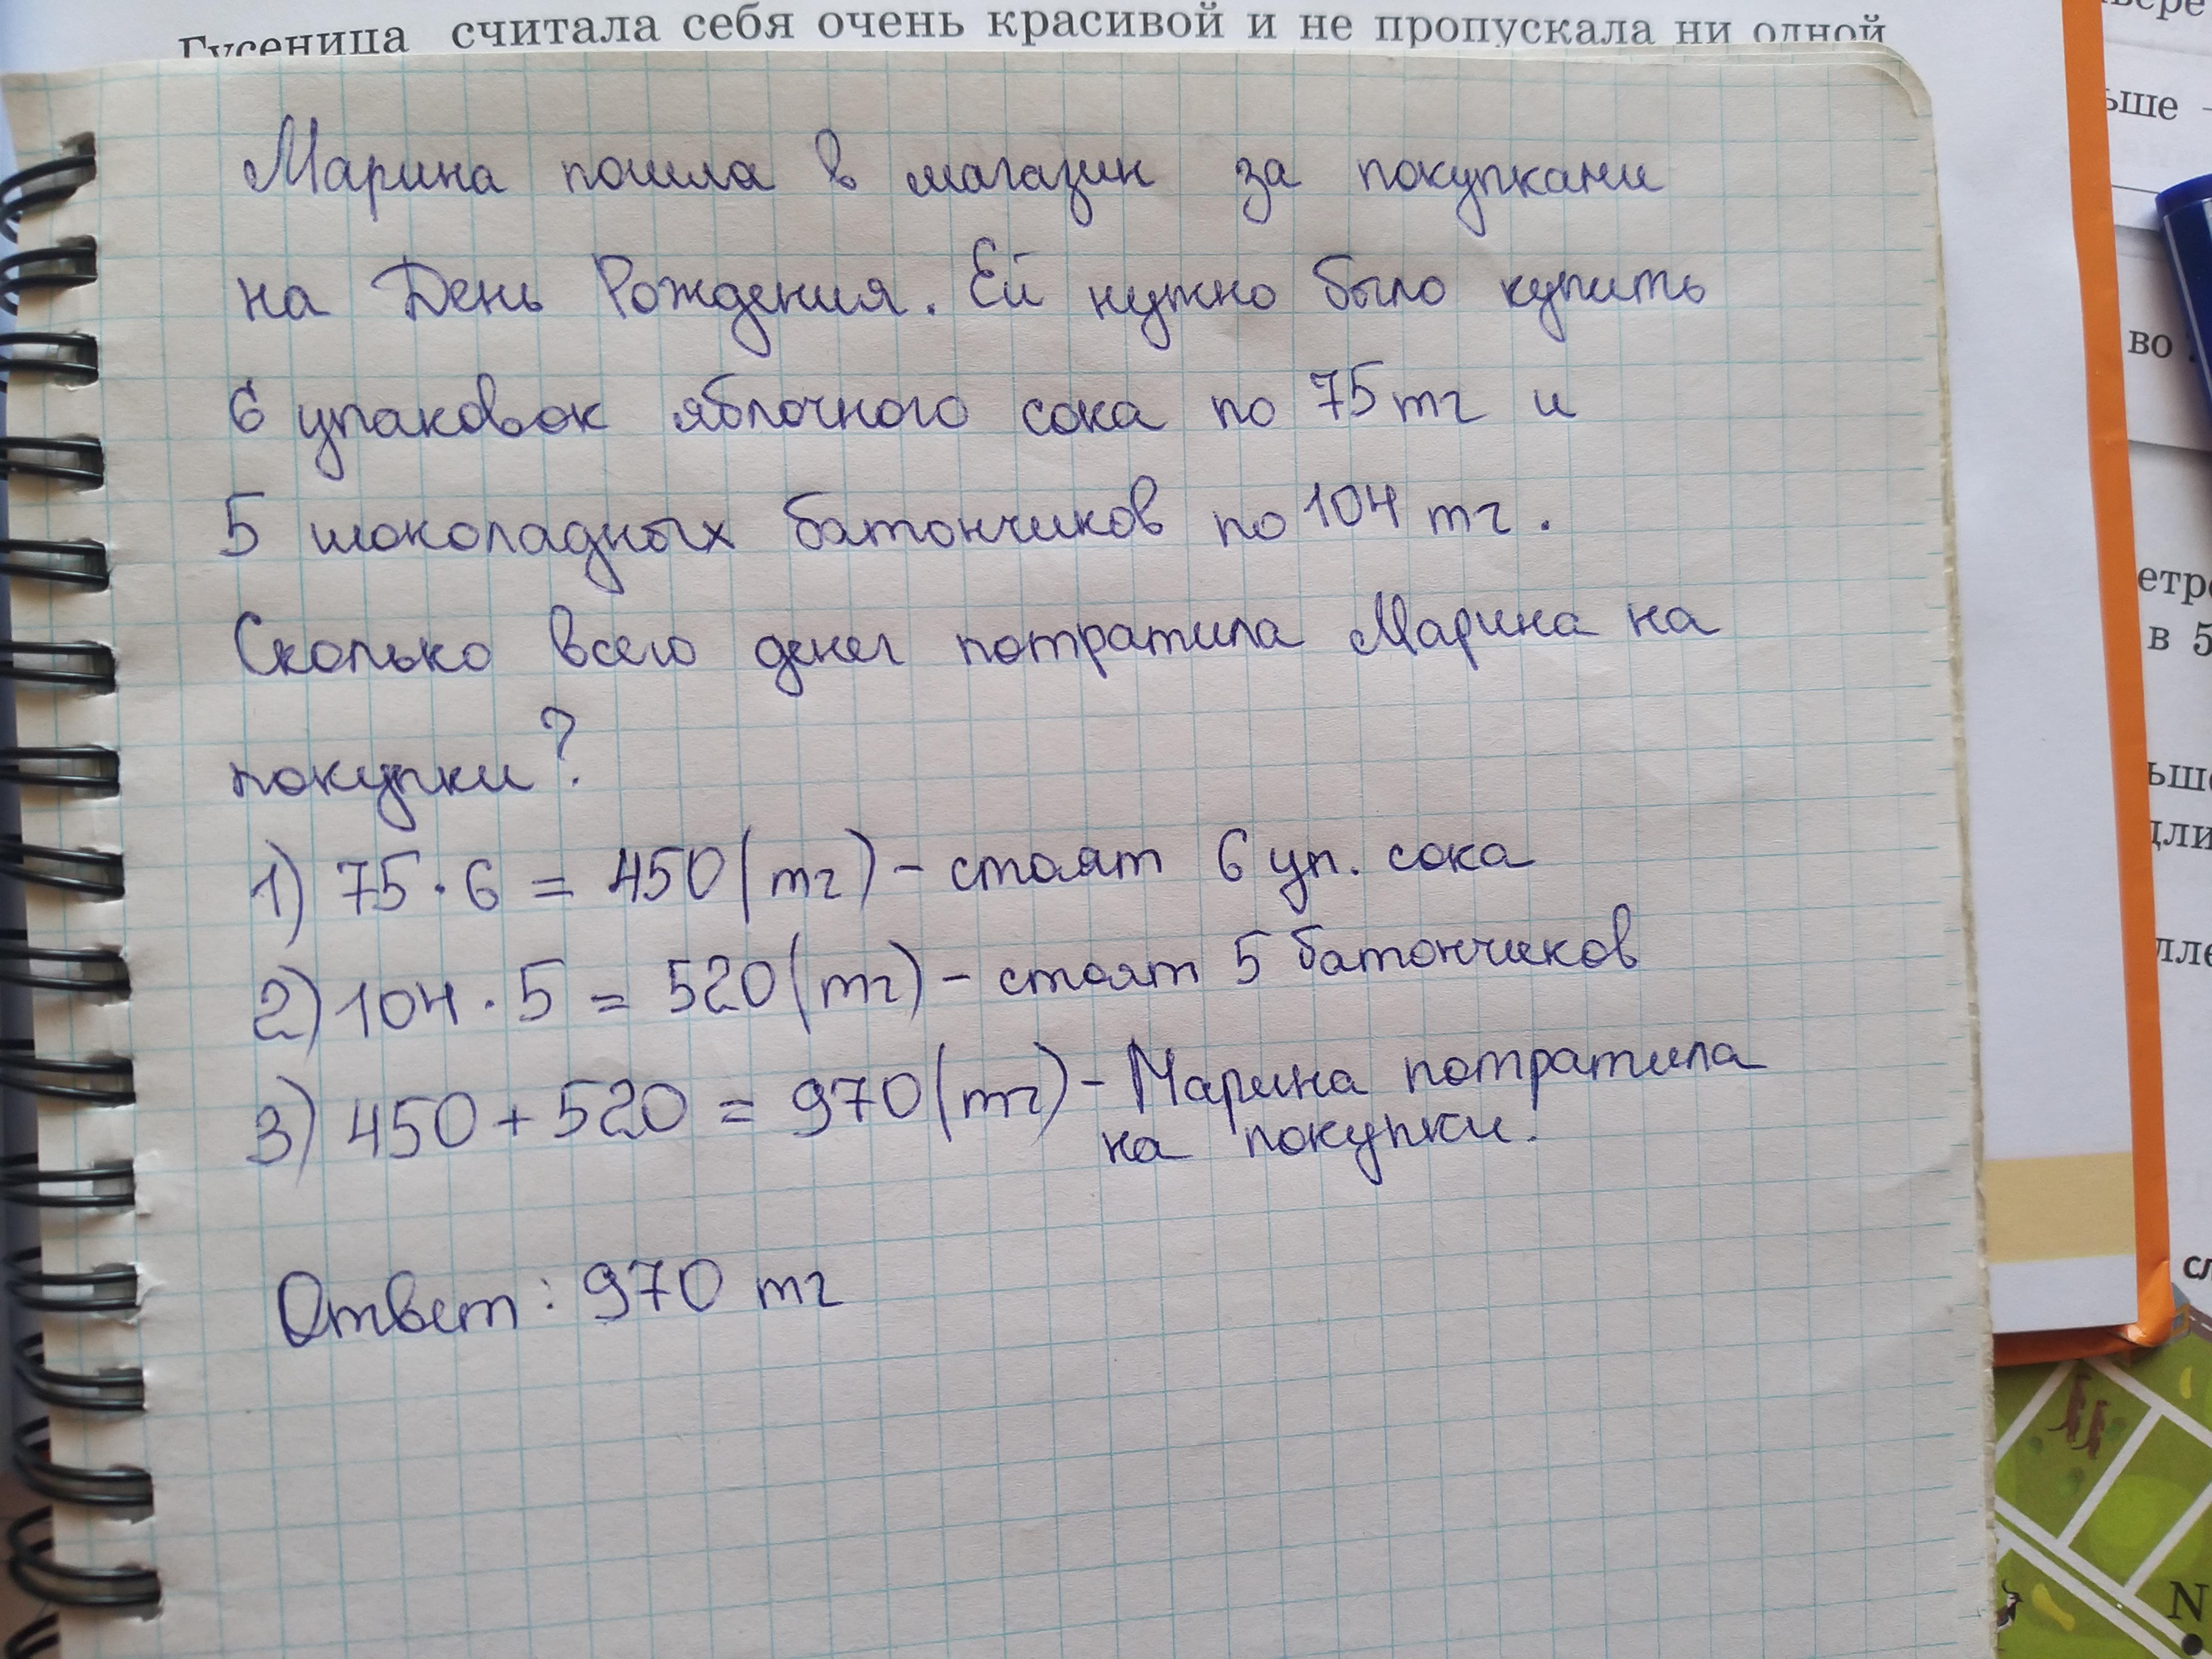 Гусеница считала себя очень красивой и не пропускала ни одной
Марина пошла в магазин за покупками
на День Рождения. Ей нужно было купить
6 упаковок яблочного сока по 75 тг и
5 шоколадных батончиков по 104 тг.
Сколько всего денег потратила Марина на
покупки?
1) 75 · 6 = 450 (тг) – стоят 6 уп. сока
2) 104 · 5 = 520 (тг) – стоят 5 батончиков
3) 450 + 520 = 970 (тг) – Марина потратила
на покупки.
Ответ: 970 тг
ьше –
во
в 5
N